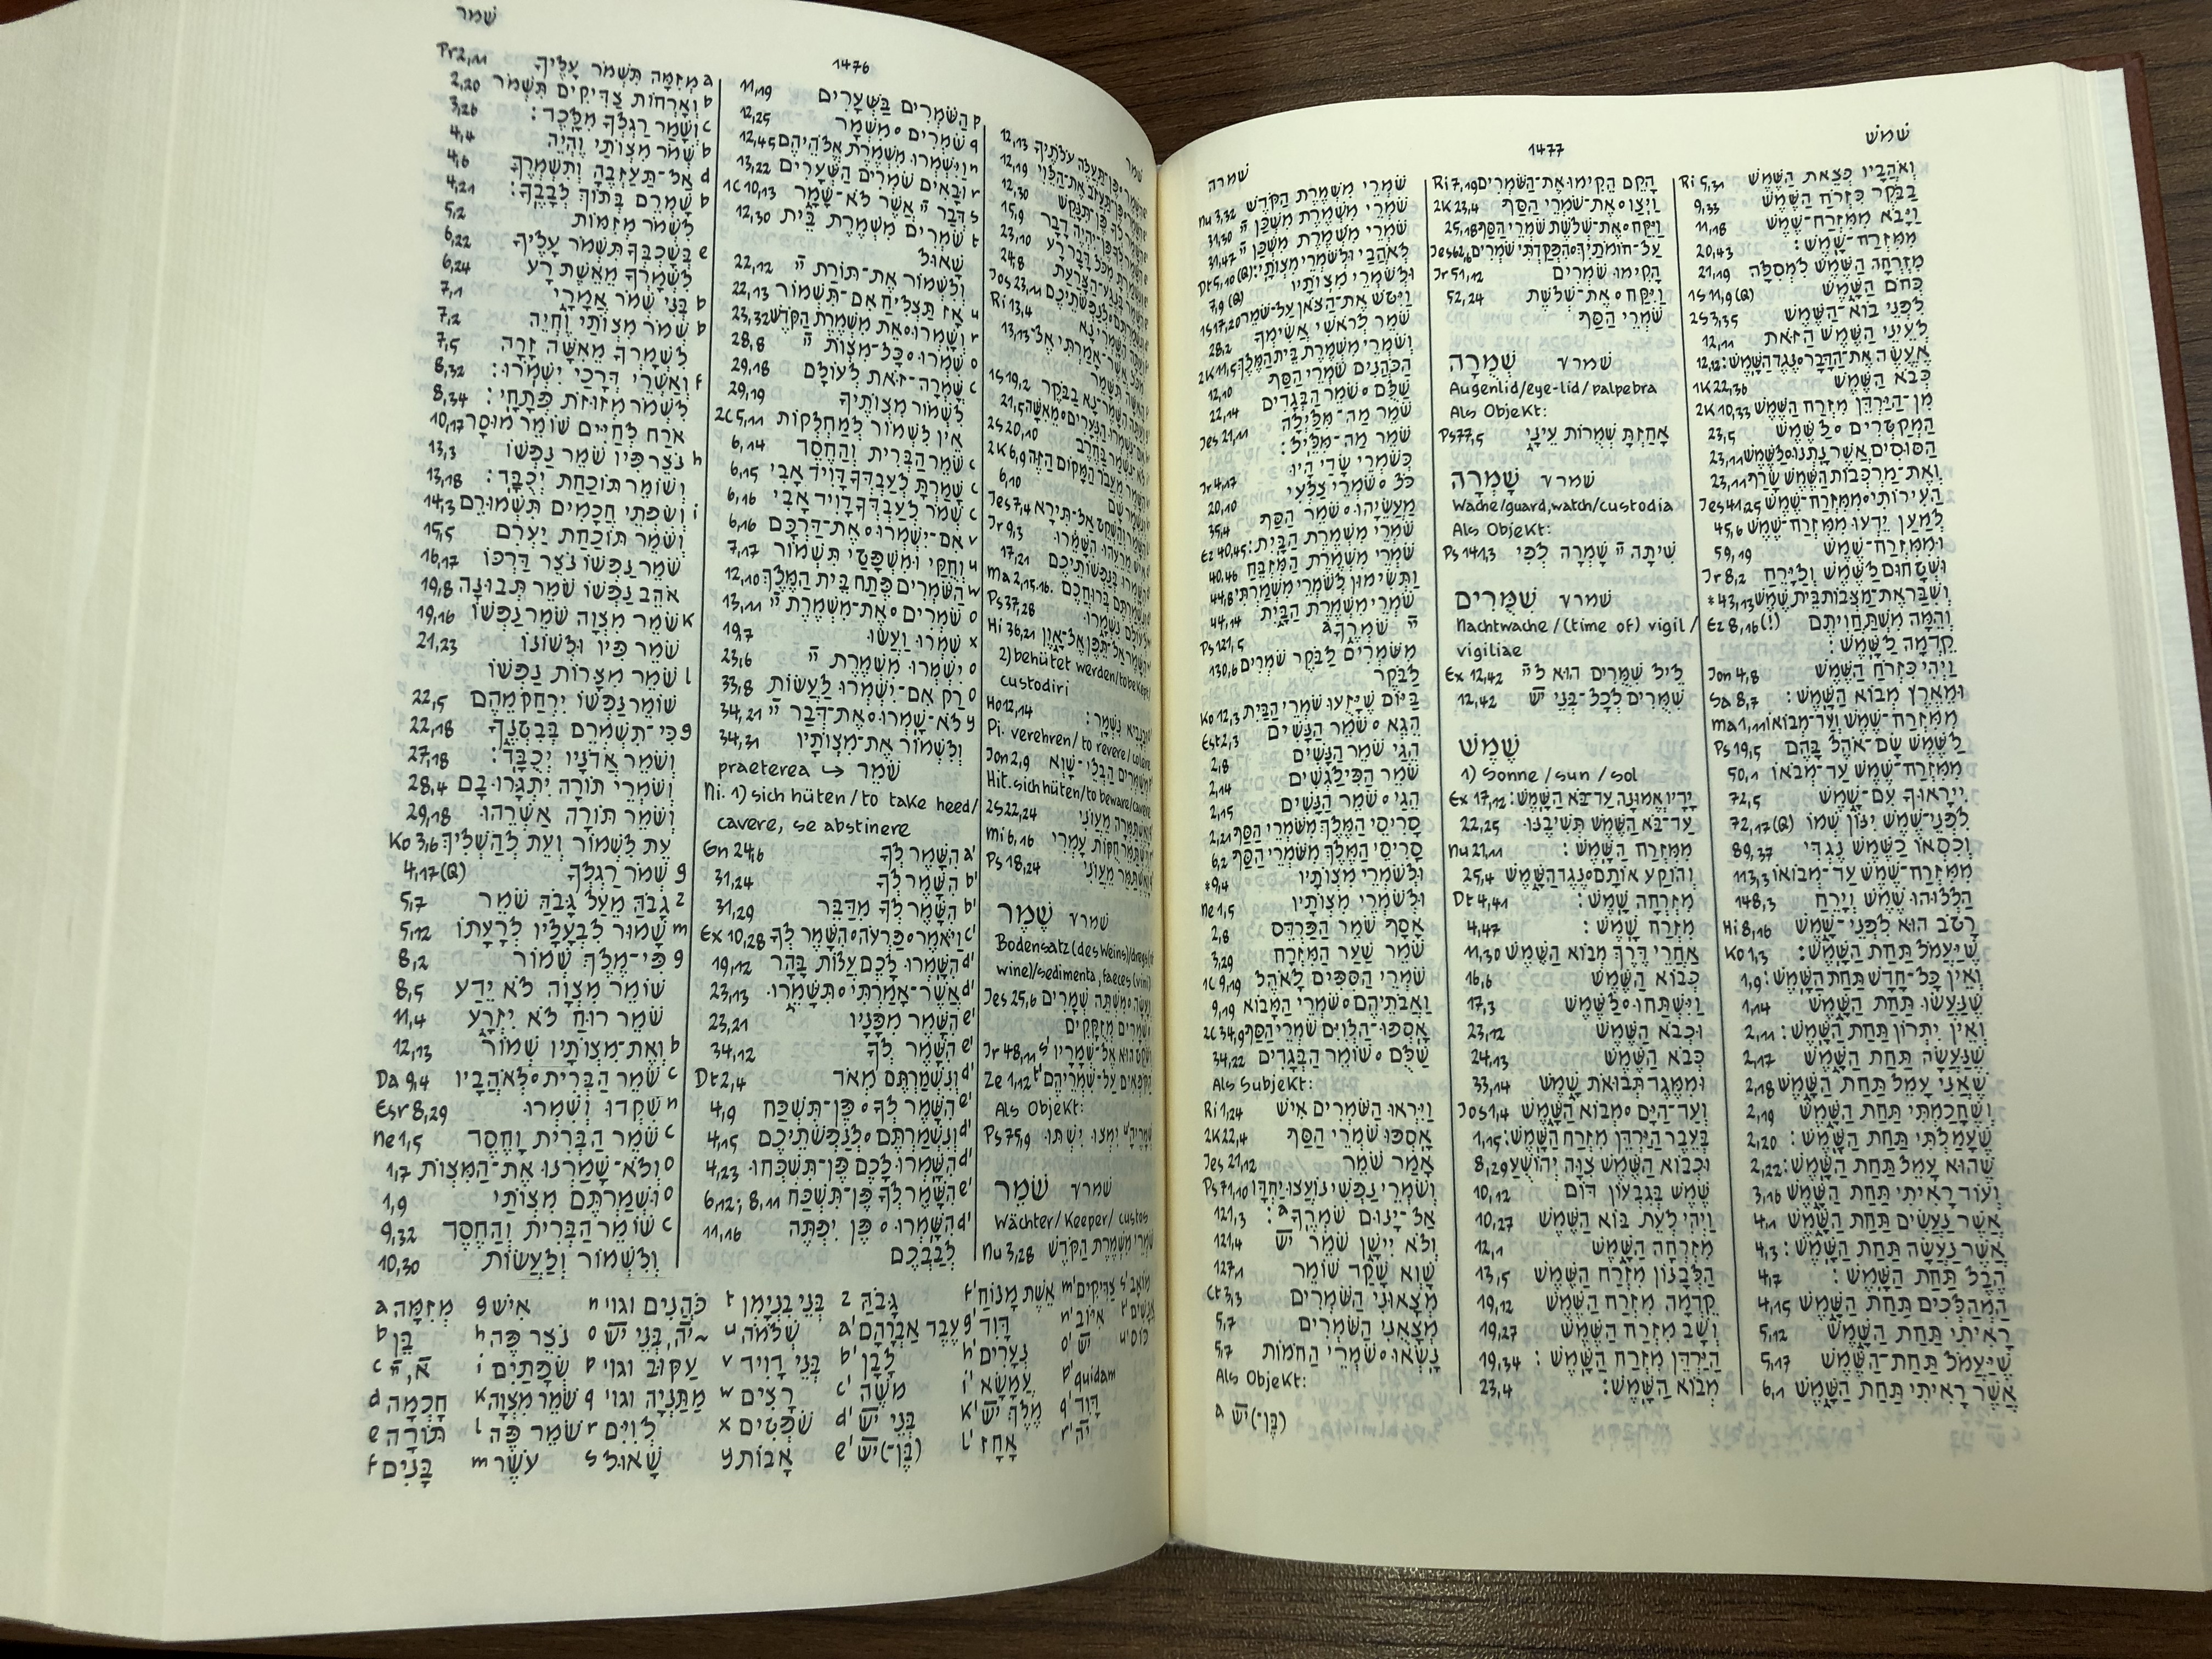 שׁמר
1476
Pr 2,11 מְזִמָּה תִּשְׁמֹר עָלֶיךָ a
2,20 וְאָרְחוֹת צַדִּיקִים תִּשְׁמֹר b
3,26 וְשָׁמַר רַגְלְךָ מִלָּכֶד׃ c
4,4 שְׁמֹר מִצְוֹתַי וֶחְיֵה b
4,6 אַל־תַּעַזְבֶהָ וְתִשְׁמְרֶךָּ d
4,21 שָׁמְרֵם בְּתוֹךְ לְבָבֶךָ׃ b
5,2 לִשְׁמֹר מְזִמּוֹת
6,22 בְּשָׁכְבְּךָ תִּשְׁמֹר עָלֶיךָ e
6,24 לִשְׁמָרְךָ מֵאֵשֶׁת רָע
7,1 בְּנִי שְׁמֹר אֲמָרָי b
7,2 שְׁמֹר מִצְוֹתַי וֶחְיֵה b
7,5 לִשְׁמָרְךָ מֵאִשָּׁה זָרָה
8,32 וְאַשְׁרֵי דְּרָכַי יִשְׁמֹרוּ׃ f
8,34 לִשְׁמֹר מְזוּזֹת פְּתָחָי׃
10,17 אֹרַח לְחַיִּים שׁוֹמֵר מוּסָר
13,3 נֹצֵר פִּיו שֹׁמֵר נַפְשׁוֹ h
13,18 וְשׁוֹמֵר תּוֹכַחַת יְכֻבָּד׃
14,3 וְשִׂפְתֵי חֲכָמִים תִּשְׁמוּרֵם i
15,5 וְשֹׁמֵר תּוֹכַחַת יַעְרִם
16,17 שֹׁמֵר נַפְשׁוֹ נֹצֵר דַּרְכּוֹ
19,8 אֹהֵב נַפְשׁוֹ שֹׁמֵר תְּבוּנָה
19,16 שֹׁמֵר מִצְוָה שֹׁמֵר נַפְשׁוֹ k
21,23 שֹׁמֵר פִּיו וּלְשׁוֹנוֹ
שֹׁמֵר מִצָּרוֹת נַפְשׁוֹ l
22,5 שׁוֹמֵר נַפְשׁוֹ יִרְחַק מֵהֶם
22,18 כִּי־תִשְׁמְרֵם בְּבִטְנֶךָ g
27,18 וְשֹׁמֵר אֲדֹנָיו יְכֻבָּד׃
28,4 וְשֹׁמְרֵי תוֹרָה יִתְגָּרוּ בָם
29,18 וְשֹׁמֵר תּוֹרָה אַשְׁרֵהוּ
Ko 3,6 עֵת לִשְׁמוֹר וְעֵת לְהַשְׁלִיךְ
4,17(Q) שְׁמֹר רַגְלְךָ g
5,7 גָבֹהַּ מֵעַל גָּבֹהַּ שֹׁמֵר z
5,12 שָׁמוּר לִבְעָלָיו לְרָעָתוֹ m
8,2 פִּי־מֶלֶךְ שְׁמוֹר g
8,5 שׁוֹמֵר מִצְוָה לֹא יֵדַע
11,4 שֹׁמֵר רוּחַ לֹא יִזְרָע
12,13 וְאֶת־מִצְוֹתָיו שְׁמוֹר b
Da 9,4 שֹׁמֵר הַבְּרִית ∘ לְאֹהֲבָיו c
Esr 8,29 שִׁקְדוּ וְשִׁמְרוּ n
Ne 1,5 שֹׁמֵר הַבְּרִית וָחֶסֶד c
1,7 וְלֹא־שָׁמַרְנוּ אֶת־הַמִּצְוֹת o
1,9 וּשְׁמַרְתֶּם מִצְוֹתַי o
9,32 שׁוֹמֵר הַבְּרִית וְהַחֶסֶד c
10,30 וְלִשְׁמוֹר וְלַעֲשׂוֹת
11,19 הַשֹּׁמְרִים בַּשְּׁעָרִים p
12,25 שֹׁמְרִים ∘ מִשְׁמָר q
12,45 וַיִּשְׁמְרוּ מִשְׁמֶרֶת אֱלֹהֵיהֶם n
13,22 וּבָאִים שֹׁמְרִים הַשְּׁעָרִים r
1C 10,13 דְּבַר יי אֲשֶׁר לֹא־שָׁמָר s
12,30 שֹׁמְרִים מִשְׁמֶרֶת בֵּית t
שָׁאוּל
22,12 וְלִשְׁמוֹר אֶת־תּוֹרַת יי
22,13 אָז תַּצְלִיחַ אִם־תִּשְׁמוֹר u
23,32 וְשָׁמְרוּ ∘ אֶת מִשְׁמֶרֶת הַקֹּדֶשׁ r
28,8 שִׁמְרוּ ∘ כָּל־מִצְוֹת יי o
29,18 שָׁמְרָה־זֹּאת לְעוֹלָם c
29,19 לִשְׁמוֹר מִצְוֹתֶיךָ
2C 5,11 אֵין לִשְׁמוֹר לְמַחְלְקוֹת
6,14 שֹׁמֵר הַבְּרִית וְהַחֶסֶד c
6,15 שָׁמַרְתָּ לְעַבְדְּךָ דָּוִיד אָבִי c
6,16 שְׁמֹר לְעַבְדְּךָ דָוִיד אָבִי c
6,16 אִם־יִשְׁמְרוּ ∘ אֶת־דַּרְכָּם v
7,17 וְחֻקַּי וּמִשְׁפָּטַי תִּשְׁמוֹר u
12,10 הַשֹּׁמְרִים פֶּתַח בֵּית הַמֶּלֶךְ w
13,11 שֹׁמְרִים ∘ אֶת־מִשְׁמֶרֶת יי o
19,7 שִׁמְרוּ וַעֲשׂוּ x
23,6 יִשְׁמְרוּ מִשְׁמֶרֶת יי o
33,8 רַק אִם־יִשְׁמְרוּ לַעֲשׂוֹת o
34,21 לֹא־שָׁמְרוּ ∘ אֶת־דְּבַר יי y
34,31 וְלִשְׁמוֹר אֶת־מִצְוֹתָיו
praeterea ↪ שֹׁמֵר
Ni. 1) sich hüten/to take heed/
cavere, se abstinere
Gn 24,6 הִשָּׁמֶר לְךָ a'
31,24 הִשָּׁמֶר לְךָ b'
31,29 הִשָּׁמֶר לְךָ מִדַּבֵּר b'
Ex 10,28 וַיֹּאמֶר ∘ פַרְעֹה ∘ הִשָּׁמֶר לְךָ c'
19,12 הִשָּׁמְרוּ לָכֶם עֲלוֹת בָּהָר d'
23,13 אֲשֶׁר־אָמַרְתִּי ∘ תִּשָּׁמֵרוּ d'
23,21 הִשָּׁמֶר מִפָּנָיו e'
34,12 הִשָּׁמֶר לְךָ e'
Dt 2,4 וְנִשְׁמַרְתֶּם מְאֹד d'
4,9 הִשָּׁמֶר לְךָ ∘ פֶּן־תִּשְׁכַּח e'
4,15 וְנִשְׁמַרְתֶּם ∘ לְנַפְשֹׁתֵיכֶם d'
4,23 הִשָּׁמְרוּ לָכֶם פֶּן־תִּשְׁכְּחוּ d'
6,12; 8,11 הִשָּׁמֶר לְךָ פֶּן־תִּשְׁכַּח e'
11,16 הִשָּׁמְרוּ ∘ פֶּן יִפְתֶּה d'
לְבַבְכֶם
שׁמר
12,13 פֶּן־תַּעֲלֶה עֹלֹתֶיךָ
12,19 פֶּן־תַּעֲזֹב אֶת־הַלֵּוִי
12,30 פֶּן־תִּנָּקֵשׁ
15,9 פֶּן־יִהְיֶה דָבָר
23,10 מִכֹּל דָּבָר רָע
24,8 בְּנֶגַע־הַצָּרַעַת
Jos 23,11 לְנַפְשֹׁתֵיכֶם
Ri 13,4
13,13 אָמַרְתִּי אֶל־
1S 19,2 הִשָּׁמֶר־נָא בַבֹּקֶר
21,5 הַנְּעָרִים ∘ מֵאִשָּׁה
2S 20,10 בַּחֶרֶב
2K 6,9 מֵעֲבֹר הַמָּקוֹם הַזֶּה
6,10 שָׁם
Jes 7,4 וְהַשְׁקֵט אַל־תִּירָא
Jr 9,3 מֵרֵעֵהוּ הִשָּׁמֵרוּ
17,21 בְּנַפְשׁוֹתֵיכֶם
Ma 2,15.16 בְּרוּחֲכֶם
Ps 37,28 נִשְׁמָרוּ
Hi 36,21 אַל־תֵּפֶן אֶל־אָוֶן
2) behütet werden/to be kept/
custodiri
Ho 12,14 נִשְׁמָר׃
Pi. verehren/to revere/colere
Jon 2,9 הַבְלֵי־שָׁוְא
Hit. sich hüten/to beware/cavere
2S 22,24 מֵעֲוֹנִי
Mi 6,16 חֻקּוֹת עָמְרִי
Ps 18,24 מֵעֲוֹנִי
שֶׁמֶר √שׁמר
Bodensatz (des Weins)/dregs (of
wine)/sedimenta, faeces (vini)
Jes 25,6 מִשְׁתֵּה שְׁמָרִים
שְׁמָרִים מְזֻקָּקִים
Jr 48,11 הוּא אֶל־שְׁמָרָיו s'
Ze 1,12 עַל־שִׁמְרֵיהֶם t'
Als Objekt:
Ps 75,9 שְׁמָרֶיהָ יִמְצוּ יִשְׁתּוּ u'
שֹׁמֵר √שׁמר
Wächter/Keeper/custos
Nu 3,28 שֹׁמְרֵי מִשְׁמֶרֶת הַקֹּדֶשׁ
a מְזִמָּה g אִישׁ n כֹּהֲנִים וגוי t בְּנֵי בִנְיָמִן z גָּבֹהַּ f' אֵשֶׁת מָנוֹחַ m' צַדִּיקִים s' מוֹאָב
b בֵּן h נֹצֵר פֶּה o ~יָה, בְּנֵי יש u שְׁלֹמֹה a' עֶבֶד אַבְרָהָם g' דָּוִד n' אִיּוֹב t' אֲנָשִׁים
c א, יי i שְׂפָתַיִם p עַקּוּב וגוי v בְּנֵי דָוִיד b' לָבָן h' נְעָרִים o' יש u' כּוֹס
d חָכְמָה k שֹׁמֵר מִצְוָה q מַתַּנְיָה וגוי w רָצִים c' מֹשֶׁה i' עֲמָשָׂא p' quidam
e תּוֹרָה l שֹׁמֵר פֶּה r לְוִיִּם x שֹׁפְטִים d' בְּנֵי יש k' מֶלֶךְ יש q' דָּוִד
f בָּנִים m עֹשֶׁר s שָׁאוּל y אָבוֹת e' (בֶּן־)יש l' אָחָז r' יה
שׁמרה
1477
שׁמשׁ
Nu 3,32 שֹׁמְרֵי מִשְׁמֶרֶת הַקֹּדֶשׁ
31,30 שֹׁמְרֵי מִשְׁמֶרֶת מִשְׁכַּן יי
31,47 שֹׁמְרֵי מִשְׁמֶרֶת מִשְׁכַּן יי
Dt 5,10(Q) לְאֹהֲבַי וּלְשֹׁמְרֵי מִצְוֹתָי׃
7,9(Q) וּלְשֹׁמְרֵי מִצְוֹתָיו
1S 17,20 וַיִּטֹּשׁ אֶת־הַצֹּאן עַל־שֹׁמֵר
28,2 שֹׁמֵר לְרֹאשִׁי אֲשִׂימְךָ
2K 11,5 וְשֹׁמְרֵי מִשְׁמֶרֶת בֵּית הַמֶּלֶךְ
12,10 הַכֹּהֲנִים שֹׁמְרֵי הַסַּף
22,14 שַׁלֻּם ∘ שֹׁמֵר הַבְּגָדִים
Jes 21,11 שֹׁמֵר מַה־מִּלַּיְלָה
שֹׁמֵר מַה־מִּלֵּיל׃
Jr 4,17 כְּשֹׁמְרֵי שָׂדַי הָיוּ
20,10 כֹּל ∘ שֹׁמְרֵי צַלְעִי
35,4 מַעֲשֵׂיָהוּ ∘ שֹׁמֵר הַסַּף
Ez 40,45 שֹׁמְרֵי מִשְׁמֶרֶת הַבָּיִת׃
40,46 שֹׁמְרֵי מִשְׁמֶרֶת הַמִּזְבֵּחַ
44,8 וַתְּשִׂימוּן לְשֹׁמְרֵי מִשְׁמַרְתִּי
44,14 שֹׁמְרֵי מִשְׁמֶרֶת הַבָּיִת
Ps 121,5 יי שֹׁמְרֶךָ a
130,6 מִשֹּׁמְרִים לַבֹּקֶר שֹׁמְרִים
לַבֹּקֶר
Ko 12,3 בַּיּוֹם שֶׁיָּזֻעוּ שֹׁמְרֵי הַבַּיִת
Est 2,3 הֵגֶא ∘ שֹׁמֵר הַנָּשִׁים
2,8 הֵגַי שֹׁמֵר הַנָּשִׁים
2,14 שֹׁמֵר הַפִּילַגְשִׁים
2,15 הֵגַי ∘ שֹׁמֵר הַנָּשִׁים
2,21 סָרִיסֵי הַמֶּלֶךְ מִשֹּׁמְרֵי הַסַּף
6,2 סָרִיסֵי הַמֶּלֶךְ מִשֹּׁמְרֵי הַסַּף
*9,4 וּלְשֹׁמְרֵי מִצְוֹתָיו
Ne 1,5 וּלְשֹׁמְרֵי מִצְוֹתָיו
2,8 אָסָף שֹׁמֵר הַפַּרְדֵּס
3,29 שֹׁמֵר שַׁעַר הַמִּזְרָח
1C 9,19 שֹׁמְרֵי הַסִּפִּים לָאֹהֶל
9,19 וַאֲבֹתֵיהֶם ∘ שֹׁמְרֵי הַמָּבוֹא
2C 34,9 אָסְפוּ ∘ הַלְוִיִּם שֹׁמְרֵי הַסַּף
34,22 שַׁלֻּם ∘ שׁוֹמֵר הַבְּגָדִים
Als Subjekt:
Ri 1,24 וַיִּרְאוּ הַשֹּׁמְרִים אִישׁ
2K 22,4 אָסְפוּ שֹׁמְרֵי הַסַּף
Jes 21,12 אָמַר שֹׁמֵר
Ps 71,10 וְשֹׁמְרֵי נַפְשִׁי נוֹעֲצוּ יַחְדָּו
121,3 אַל־יָנוּם שֹׁמְרֶךָ׃ a
121,4 וְלֹא יִישָׁן שׁוֹמֵר יש
127,1 שָׁוְא שָׁקַד שׁוֹמֵר
Ct 3,3 מְצָאוּנִי הַשֹּׁמְרִים
5,7 מְצָאֻנִי הַשֹּׁמְרִים
5,7 נָשְׂאוּ ∘ שֹׁמְרֵי הַחֹמוֹת
Als Objekt:
a (בֶּן־)יש
Ri 7,19 הָקֵם הֵקִימוּ אֶת־הַשֹּׁמְרִים
2K 23,4 וַיְצַו ∘ אֶת־שֹׁמְרֵי הַסַּף
25,18 וַיִּקַּח ∘ אֶת־שְׁלֹשֶׁת שֹׁמְרֵי הַסַּף
Jes 62,6 עַל־חוֹמֹתַיִךְ ∘ הִפְקַדְתִּי שֹׁמְרִים
Jr 51,12 הָקִימוּ שֹׁמְרִים
52,24 וַיִּקַּח ∘ אֶת־שְׁלֹשֶׁת
שֹׁמְרֵי הַסַּף
שְׁמֻרָה √שׁמר
Augenlid/eye-lid/palpebra
Als Objekt:
Ps 77,5 אָחַזְתָּ שְׁמֻרוֹת עֵינָי
שָׁמְרָה √שׁמר
Wache/guard, watch/custodia
Als Objekt:
Ps 141,3 שִׁיתָה יי שָׁמְרָה לְפִי
שִׁמֻּרִים √שׁמר
Nachtwache/(time of) vigil/
vigiliae
Ex 12,42 לֵיל שִׁמֻּרִים הוּא לַיי
12,42 שִׁמֻּרִים לְכָל־בְּנֵי יש
שֶׁמֶשׁ
1) Sonne/sun/sol
Ex 17,12 יָדָיו אֱמוּנָה עַד־בֹּא הַשָּׁמֶשׁ׃
22,25 עַד־בֹּא הַשֶּׁמֶשׁ תְּשִׁיבֶנּוּ
Nu 21,11 מִמִּזְרַח הַשָּׁמֶשׁ׃
25,4 וְהוֹקַע אוֹתָם ∘ נֶגֶד הַשָּׁמֶשׁ
Dt 4,41 מִזְרְחָה שָׁמֶשׁ׃
4,47 מִזְרַח שָׁמֶשׁ׃
11,30 אַחֲרֵי דֶּרֶךְ מְבוֹא הַשֶּׁמֶשׁ
16,6 כְּבוֹא הַשֶּׁמֶשׁ
17,3 וַיִּשְׁתַּחוּ ∘ לַשֶּׁמֶשׁ
23,12 וּכְבֹא הַשֶּׁמֶשׁ
24,13 כְּבֹא הַשֶּׁמֶשׁ
33,14 וּמִמֶּגֶד תְּבוּאֹת שָׁמֶשׁ
Jos 1,4 וְעַד־הַיָּם ∘ מְבוֹא הַשָּׁמֶשׁ
1,15 בְּעֵבֶר הַיַּרְדֵּן מִזְרַח הַשָּׁמֶשׁ׃
8,29 וּכְבוֹא הַשֶּׁמֶשׁ צִוָּה יְהוֹשֻׁעַ
10,12 שֶׁמֶשׁ בְּגִבְעוֹן דּוֹם
10,27 וַיְהִי לְעֵת בּוֹא הַשֶּׁמֶשׁ
12,1 מִזְרְחָה הַשָּׁמֶשׁ
13,5 הַלְּבָנוֹן מִזְרַח הַשֶּׁמֶשׁ
19,12 קֵדְמָה מִזְרַח הַשֶּׁמֶשׁ
19,27 וְשָׁב מִזְרַח הַשֶּׁמֶשׁ
19,34 הַיַּרְדֵּן מִזְרַח הַשָּׁמֶשׁ׃
23,4 מְבוֹא הַשָּׁמֶשׁ׃
Ri 5,31 וְאֹהֲבָיו כְּצֵאת הַשֶּׁמֶשׁ
9,33 בַבֹּקֶר כִּזְרֹחַ הַשֶּׁמֶשׁ
11,18 וַיָּבֹא מִמִּזְרַח־שֶׁמֶשׁ
20,43 מִמִּזְרַח־שָׁמֶשׁ׃
21,19 מִזְרְחָה הַשֶּׁמֶשׁ לִמְסִלָּה
1S 11,9(Q) כְּחֹם הַשָּׁמֶשׁ
2S 3,35 לִפְנֵי בוֹא־הַשֶּׁמֶשׁ
12,11 לְעֵינֵי הַשֶּׁמֶשׁ הַזֹּאת
12,12 אֶעֱשֶׂה אֶת־הַדָּבָר ∘ נֶגֶד הַשָּׁמֶשׁ׃
1K 22,36 כְּבֹא הַשֶּׁמֶשׁ
2K 10,33 מִן־הַיַּרְדֵּן מִזְרַח הַשֶּׁמֶשׁ
23,5 הַמְקַטְּרִים ∘ לַשֶּׁמֶשׁ
23,11 הַסּוּסִים אֲשֶׁר נָתְנוּ ∘ לַשֶּׁמֶשׁ
23,11 וְאֶת־מַרְכְּבוֹת הַשֶּׁמֶשׁ שָׂרַף
Jes 41,25 הַעִירוֹתִי ∘ מִמִּזְרַח־שֶׁמֶשׁ
45,6 לְמַעַן יֵדְעוּ מִמִּזְרַח־שֶׁמֶשׁ
59,19 וּמִמִּזְרַח־שֶׁמֶשׁ
Jr 8,2 וּשְׁטָחוּם לַשֶּׁמֶשׁ וְלַיָּרֵחַ
*43,13 וְשִׁבַּר אֶת־מַצְּבוֹת בֵּית שֶׁמֶשׁ
Ez 8,16(!) וְהֵמָּה מִשְׁתַּחֲוִיתֶם
קֵדְמָה לַשָּׁמֶשׁ׃
Jon 4,8 וַיְהִי כִּזְרֹחַ הַשֶּׁמֶשׁ
Sa 8,7 וּמֵאֶרֶץ מְבוֹא הַשָּׁמֶשׁ׃
Ma 1,11 מִמִּזְרַח־שֶׁמֶשׁ וְעַד־מְבוֹאוֹ
Ps 19,5 לַשֶּׁמֶשׁ שָׂם־אֹהֶל בָּהֶם
50,1 מִמִּזְרַח־שֶׁמֶשׁ עַד־מְבֹאוֹ
72,5 יִירָאוּךָ עִם־שָׁמֶשׁ
72,17(Q) לִפְנֵי־שֶׁמֶשׁ יִנּוֹן שְׁמוֹ
89,37 וְכִסְאוֹ כַשֶּׁמֶשׁ נֶגְדִּי
113,3 מִמִּזְרַח־שֶׁמֶשׁ עַד־מְבוֹאוֹ
148,3 הַלְלוּהוּ שֶׁמֶשׁ וְיָרֵחַ
Hi 8,16 רָטֹב הוּא לִפְנֵי־שָׁמֶשׁ
Ko 1,3 שֶׁיַּעֲמֹל תַּחַת הַשָּׁמֶשׁ׃
1,9 וְאֵין כָּל־חָדָשׁ תַּחַת הַשָּׁמֶשׁ׃
1,14 שֶׁנַּעֲשׂוּ תַּחַת הַשָּׁמֶשׁ
2,11 וְאֵין יִתְרוֹן תַּחַת הַשָּׁמֶשׁ׃
2,17 שֶׁנַּעֲשָׂה תַּחַת הַשָּׁמֶשׁ
2,18 שֶׁאֲנִי עָמֵל תַּחַת הַשָּׁמֶשׁ
2,19 וְשֶׁחָכַמְתִּי תַּחַת הַשָּׁמֶשׁ
2,20 שֶׁעָמַלְתִּי תַּחַת הַשָּׁמֶשׁ׃
2,22 שֶׁהוּא עָמֵל תַּחַת הַשָּׁמֶשׁ׃
3,16 וְעוֹד רָאִיתִי תַּחַת הַשָּׁמֶשׁ
4,1 אֲשֶׁר נַעֲשִׂים תַּחַת הַשָּׁמֶשׁ
4,3 אֲשֶׁר נַעֲשָׂה תַּחַת הַשָּׁמֶשׁ׃
4,7 הֶבֶל תַּחַת הַשָּׁמֶשׁ׃
4,15 הַמְהַלְּכִים תַּחַת הַשָּׁמֶשׁ
5,12 רָאִיתִי תַּחַת הַשָּׁמֶשׁ
5,17 שֶׁיַּעֲמֹל תַּחַת־הַשֶּׁמֶשׁ
6,1 אֲשֶׁר רָאִיתִי תַּחַת הַשָּׁמֶשׁ